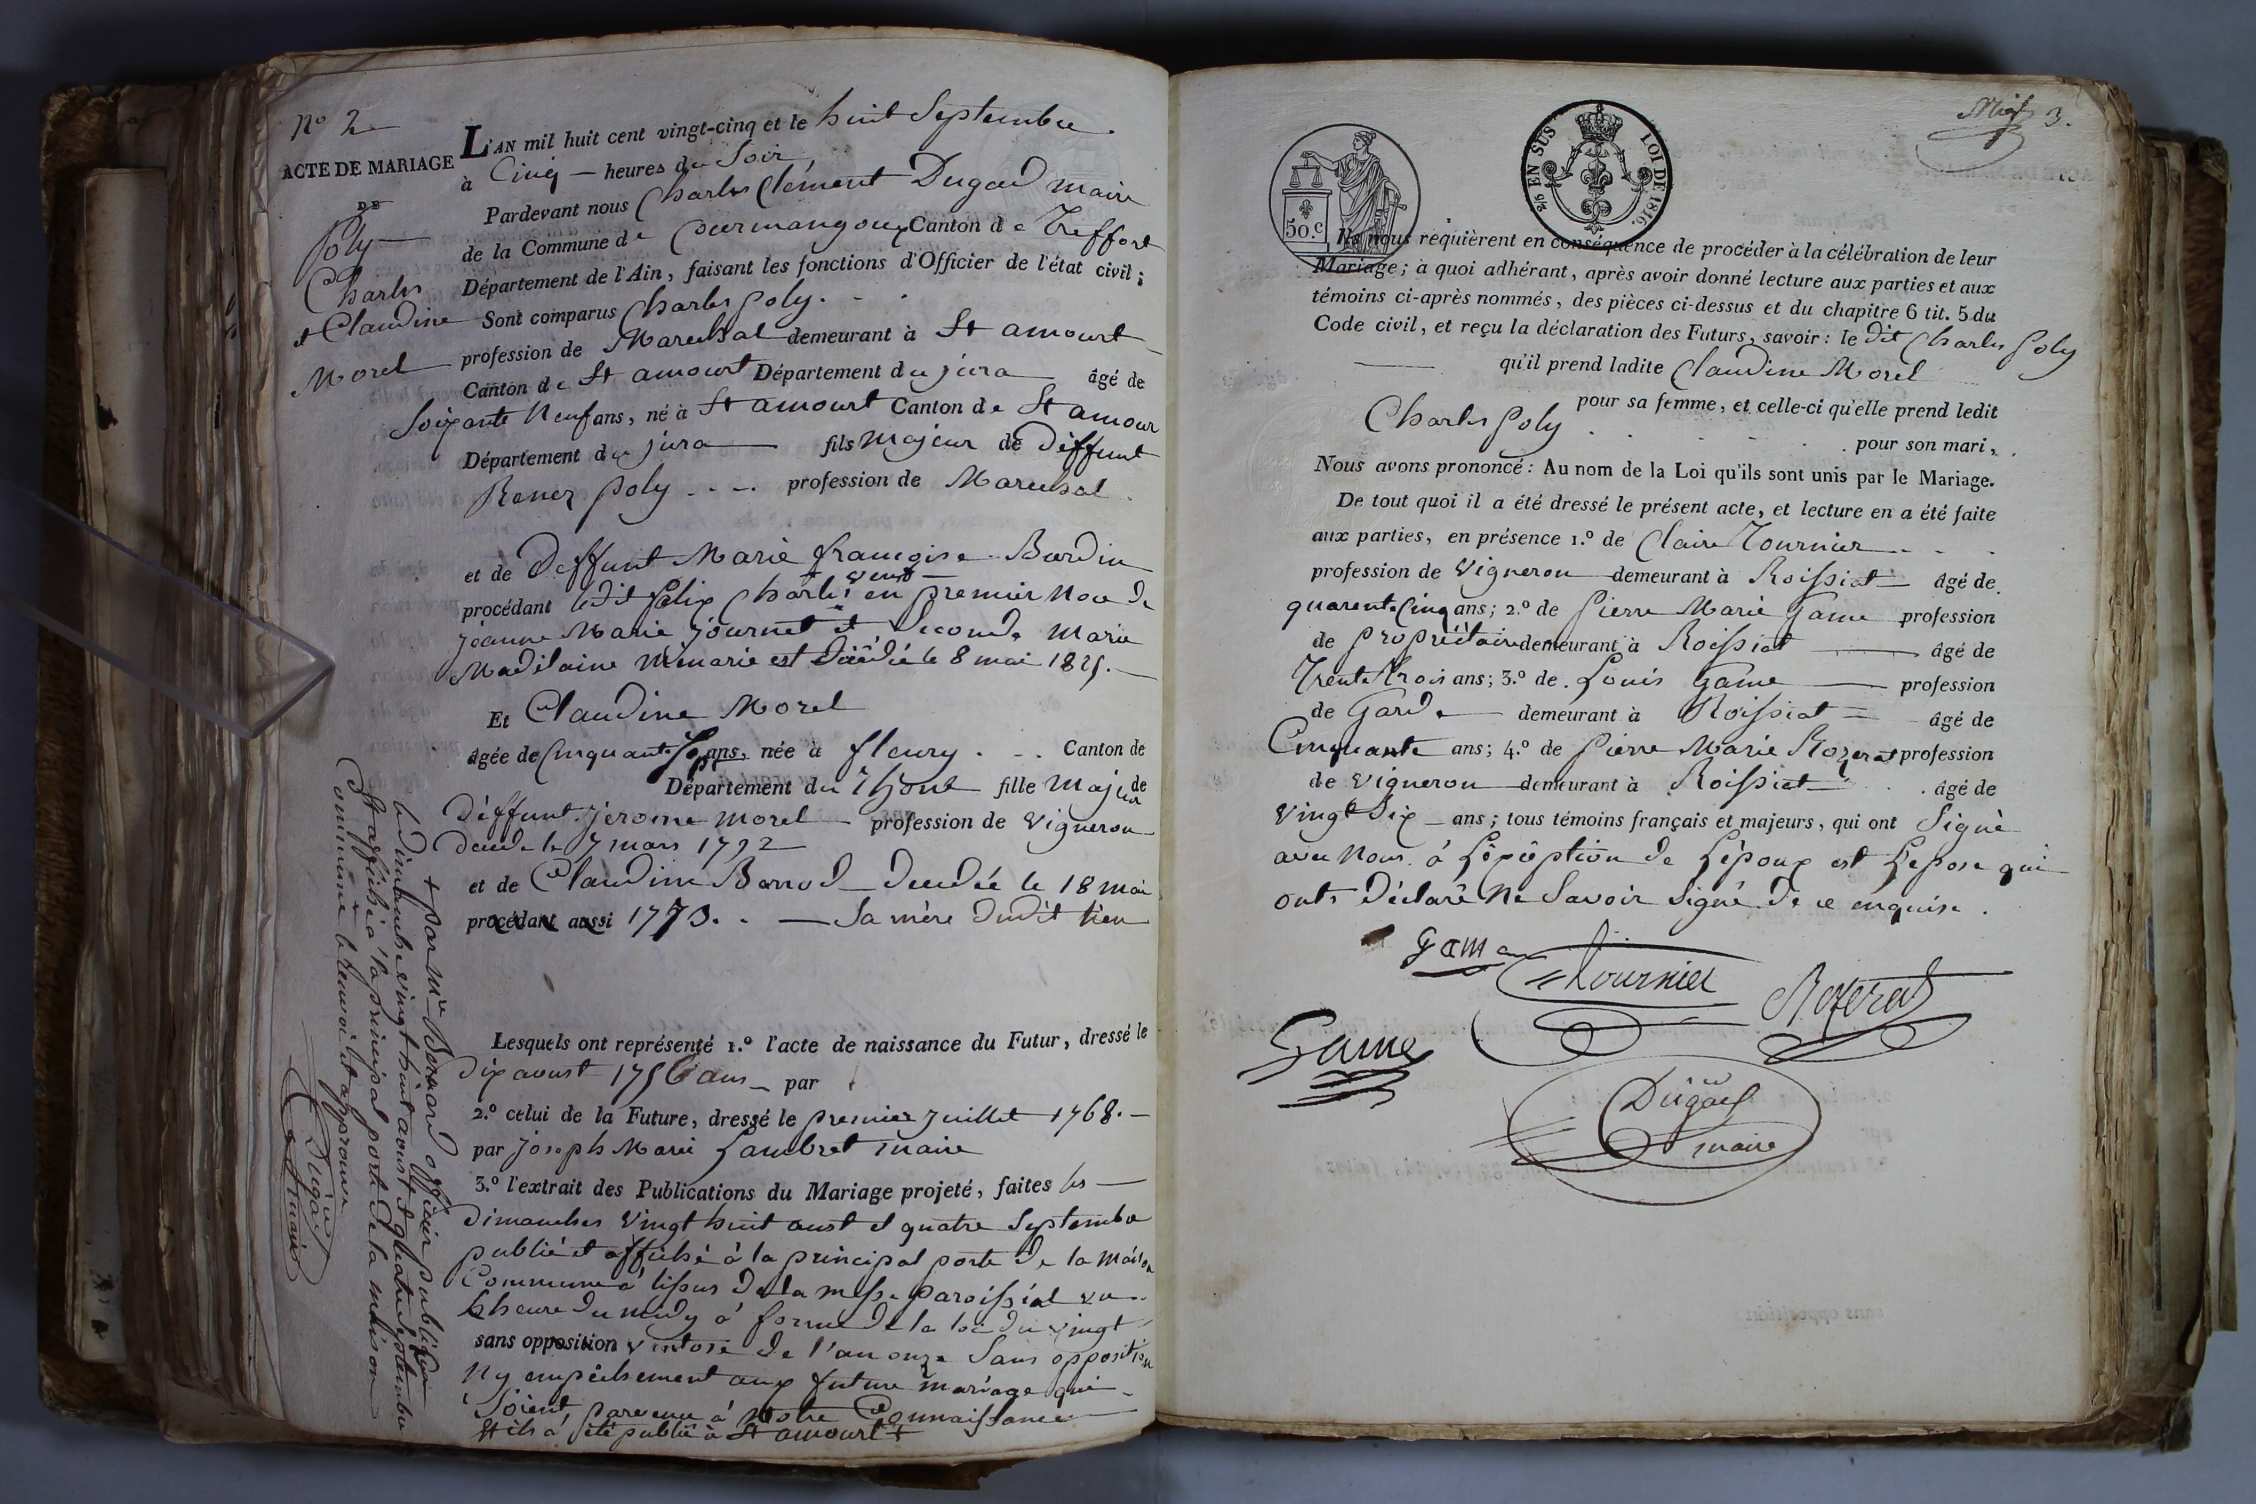 N° 2
ACTE DE MARIAGE
DE
Poly
Charles
et Claudine
Morel
L'AN mil huit cent vingt-cinq et le huit Septembre
à Cinq heures du Soir,
Pardevant nous Charles Clément Dugad maire
de la Commune de Courmangoux Canton de Treffort
Département de l'Ain, faisant les fonctions d'Officier de l'état civil;
Sont comparus Charles Poly.
profession de Marechal demeurant à St amourt
Canton de St amourt Département du jura âgé de
Soixante Neuf ans, né à St amourt Canton de St amour
Département du jura fils majeur de Déffunt
Renez Poly profession de Marechal
et de Deffunt Marie francoise Bardin
procédant ledit Charles veuf en premier Noce de
jéanne Marie journet et Seconde Marie
Madilaine est Décédée le 8 mai 1825.
Et Claudine Morel
âgée de Cinquante Sept ans, née à fleury . Canton de
Département du Rhone fille majeur de
Déffunt jérome Morel profession de vigneron
Decedé le 7 mars 1792
et de Claudine Barrod Decedée le 18 mai
procédant aussi 1773. Sa mère dudit lieu
Lesquels ont représenté 1.° l'acte de naissance du Futur, dressé le
Dix aoust 1756 par
2.° celui de la Future, dressé le premier juillet 1768.
par joseph Marie Lambret maire
3.° l'extrait des Publications du Mariage projeté, faites les
Dimanches vingt huit aust et quatre Septembre
publié et affiché à la principal porte de la maison
Commune à lissus de la messe paroissial
heure du midy à forme de la loi du vingt
sans opposition ventose de l'an onze Sans opposition
Ny empêchement aux future mariage qui
Soient parvenu à Notre Connaissance
et ils à été publié à St amourt +
+ par Mr Bernard officier public
le dimanche vingt huit aoust et quatre Septembre
et affiché à la principal porte de la maison
commune le renvoi est approuvé
Dugad
maire
3.
50.c
2/5 EN SUS
LOI DE 1816.
Ils nous requièrent en conséquence de procéder à la célébration de leur
Mariage; à quoi adhérant, après avoir donné lecture aux parties et aux
témoins ci-après nommés, des pièces ci-dessus et du chapitre 6 tit. 5 du
Code civil, et reçu la déclaration des Futurs, savoir: le dit Charles Poly
qu'il prend ladite Claudine Morel
pour sa femme, et celle-ci qu'elle prend ledit
Charles Poly pour son mari,
Nous avons prononcé: Au nom de la Loi qu'ils sont unis par le Mariage.
De tout quoi il a été dressé le présent acte, et lecture en a été faite
aux parties, en présence 1.° de Claire Tournier
profession de vigneron demeurant à Roissiat âgé de
quarente Cinq ans; 2.° de Pierre Marie Game profession
de propriétaire demeurant à Roissiat âgé de
Trente trois ans; 3.° de Louis Game profession
de Garde demeurant à Roissiat âgé de
Cinquante ans; 4.° de Pierre Marie Rozerat profession
de vigneron demeurant à Roissiat âgé de
vingt Six ans; tous témoins français et majeurs, qui ont Signé
avec Nous à L'éxéption de L'époux est L'epose qui
onts Déclaré Ne Savoir Signé de ce enquise.
Game
Tournier
Rozerat
Game
Dugad
maire